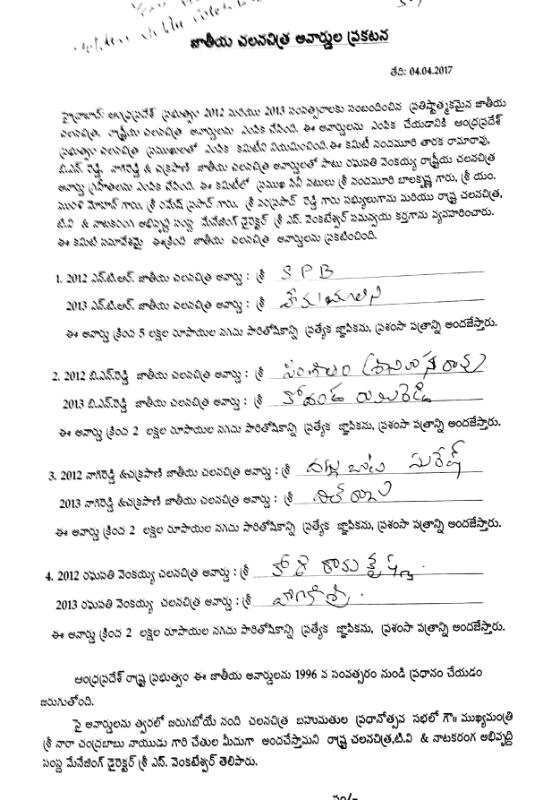 జాతీయ చలనచిత్ర అవార్డుల ప్రకటన
తేది: 04.04.2017
హైద్రాబాద్: ఆంధ్రప్రదేశ్ ప్రభుత్వం 2012 మరియు 2013 సంవత్సరాలకు సంబందించిన ప్రతిష్టాత్మకమైన జాతీయ
చలనచిత్ర, రాష్ట్రీయ చలనచిత్ర అవార్డులను ఎంపిక చేసింది. ఈ అవార్డులను ఎంపిక చేయడానికి ఆంధ్రప్రదేశ్
ప్రభుత్వం చలనచిత్ర ప్రముఖులతో ఎంపిక కమిటీని నియమించింది.ఈ కమిటీ నందమూరి తారక రామారావు,
బి.ఎన్. రెడ్డి, నాగిరెడ్డి & చక్రపాణి జాతీయ చలనచిత్ర అవార్డులతో పాటు రఘుపతి వెంకయ్య రాష్ట్రీయ చలనచిత్ర
అవార్డు గ్రహీతలను ఎంపిక చేసింది. ఈ కమిటీలో ప్రముఖ సినీ నటులు శ్రీ నందమూరి బాలకృష్ణ గారు, శ్రీ యం.
మురళి మోహన్ గారు, శ్రీ రమేష్ ప్రసాద్ గారు, శ్రీ రెడ్డి గారు సభ్యులుగాను మరియు రాష్ట్ర చలనచిత్ర,
టి.వి & నాటకరంగ అభివృద్ధి సంస్థ మేనేజింగ్ డైరెక్టర్ శ్రీ ఎస్. వెంకటేశ్వర్ సమన్వయ కర్తగాను వ్యవహరించారు.
ఈ కమిటీ సమావేశమై ఈక్రింది జాతీయ చలనచిత్ర అవార్డులను ప్రకటించింది.
1. 2012 ఎన్.టి.ఆర్. జాతీయ చలనచిత్ర అవార్డు : శ్రీ SPB
2013 ఎన్.టి.ఆర్. జాతీయ చలనచిత్ర అవార్డు : శ్రీ హేమమాలిని
ఈ అవార్డు క్రింద 5 లక్షల రూపాయల నగదు పారితోషికాన్ని ప్రత్యేక జ్ఞాపికను, ప్రశంసా పత్రాన్ని అందజేస్తారు.
2. 2012 బి.ఎన్.రెడ్డి జాతీయ చలనచిత్ర అవార్డు : శ్రీ సింగీతం (శ్రీనివాస రావు)
2013 బి.ఎన్.రెడ్డి జాతీయ చలనచిత్ర అవార్డు : శ్రీ కోదండ రామిరెడ్డి
ఈ అవార్డు క్రింద 2 లక్షల రూపాయల నగదు పారితోషికాన్ని ప్రత్యేక జ్ఞాపికను, ప్రశంసా పత్రాన్ని అందజేస్తారు.
3. 2012 నాగిరెడ్డి &చక్రపాణి జాతీయ చలనచిత్ర అవార్డు : శ్రీ దగ్గుబాటి సురేష్
2013 నాగిరెడ్డి &చక్రపాణి జాతీయ చలనచిత్ర అవార్డు : శ్రీ దిల్ రాజు
ఈ అవార్డు క్రింద 2 లక్షల రూపాయల నగదు పారితోషికాన్ని ప్రత్యేక జ్ఞాపికను, ప్రశంసా పత్రాన్ని అందజేస్తారు.
4. 2012 రఘుపతి వెంకయ్య చలనచిత్ర అవార్డు : శ్రీ కోడి రామకృష్ణ.
2013 రఘుపతి వెంకయ్య చలనచిత్ర అవార్డు : శ్రీ వాణిశ్రీ.
ఈ అవార్డు క్రింద 2 లక్షల రూపాయల నగదు పారితోషికాన్ని ప్రత్యేక జ్ఞాపికను, ప్రశంసా పత్రాన్ని అందజేస్తారు.
ఆంధ్రప్రదేశ్ రాష్ట్ర ప్రభుత్వం ఈ జాతీయ అవార్డులను 1996 వ సంవత్సరం నుండి ప్రధానం చేయడం
జరుగుతోంది.
పై అవార్డులను త్వరలో జరుగబోయే నంది చలనచిత్ర బహుమతుల ప్రధానోత్సవ సభలో గౌ॥ ముఖ్యమంత్రి
శ్రీ నారా చంద్రబాబు నాయుడు గారి చేతుల మీదుగా అందచేస్తామని రాష్ట్ర చలనచిత్ర,టి.వి & నాటకరంగ అభివృద్ధి
సంస్థ మేనేజింగ్ డైరెక్టర్ శ్రీ ఎస్. వెంకటేశ్వర్ తెలిపారు.